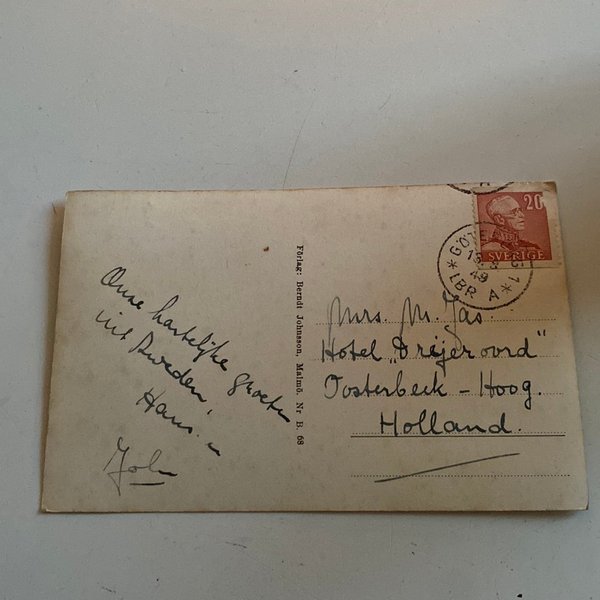 Onze hartelijke groeten
uit Sweden,
Hans. –
Förlag: Berndt Johnsson, Malmö. Nr B. 68
20
SVERIGE
49
LBR A
Mrs. M. Jas.
Hotel „Dreijeroord"
Oosterbeek – Hoog.
Holland.